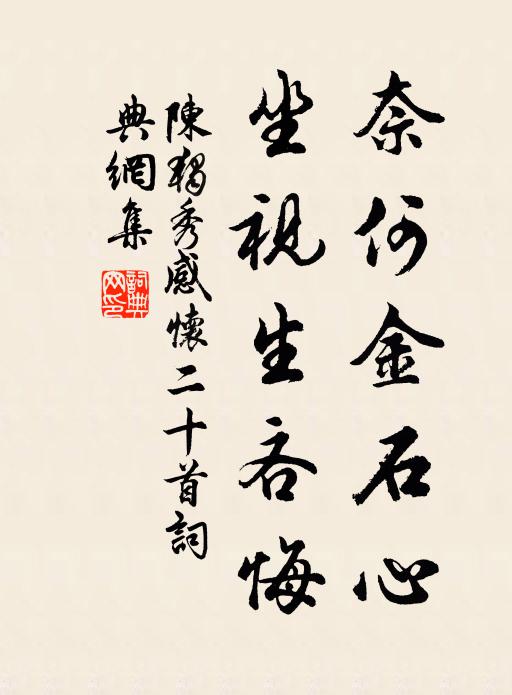 奈何金石心
坐視生吝悔
陳獨秀感懷二十首詞
典網集
詞典
网印